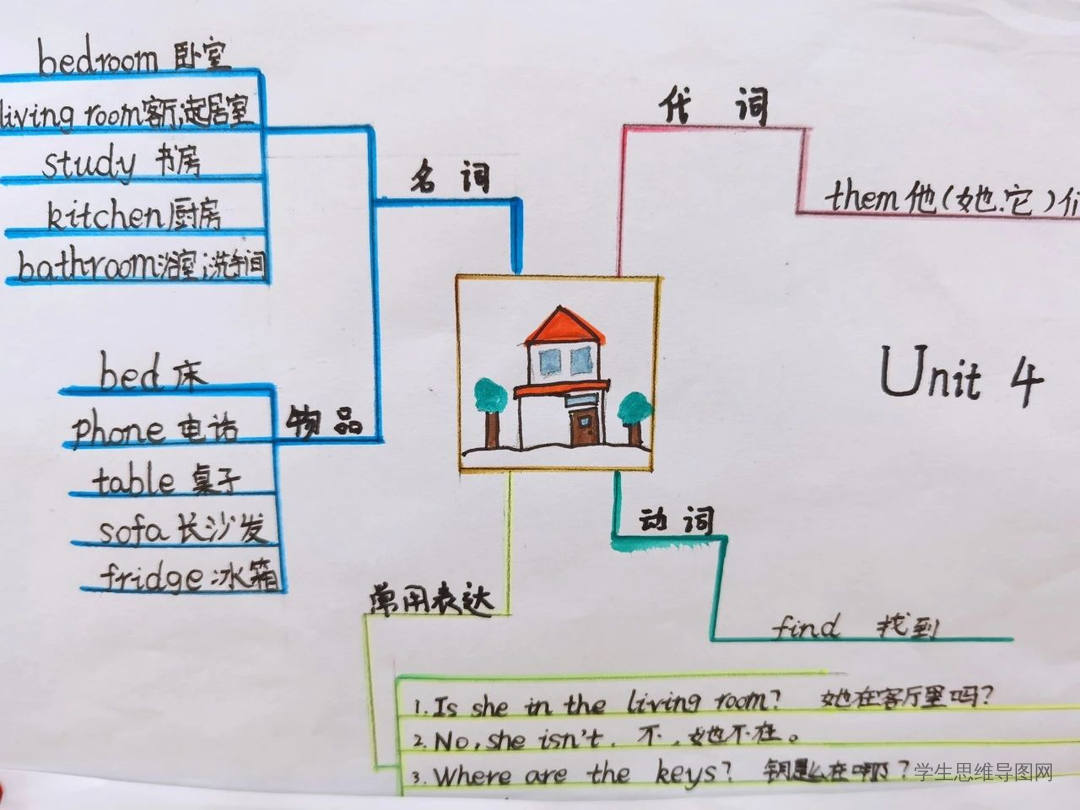 bedroom 卧室
living room客厅;起居室
study 书房
kitchen厨房
bathroom浴室;洗手间
名词
代词
them他(她.它)们
Unit 4
bed 床
phone 电话
table 桌子
sofa 长沙发
fridge 冰箱
物品
动词
find 找到
常用表达
1. Is she in the living room? 她在客厅里吗?
2. No, she isn't. 不,她不在。
3. Where are the keys? 钥匙在哪?
学生思维导图网